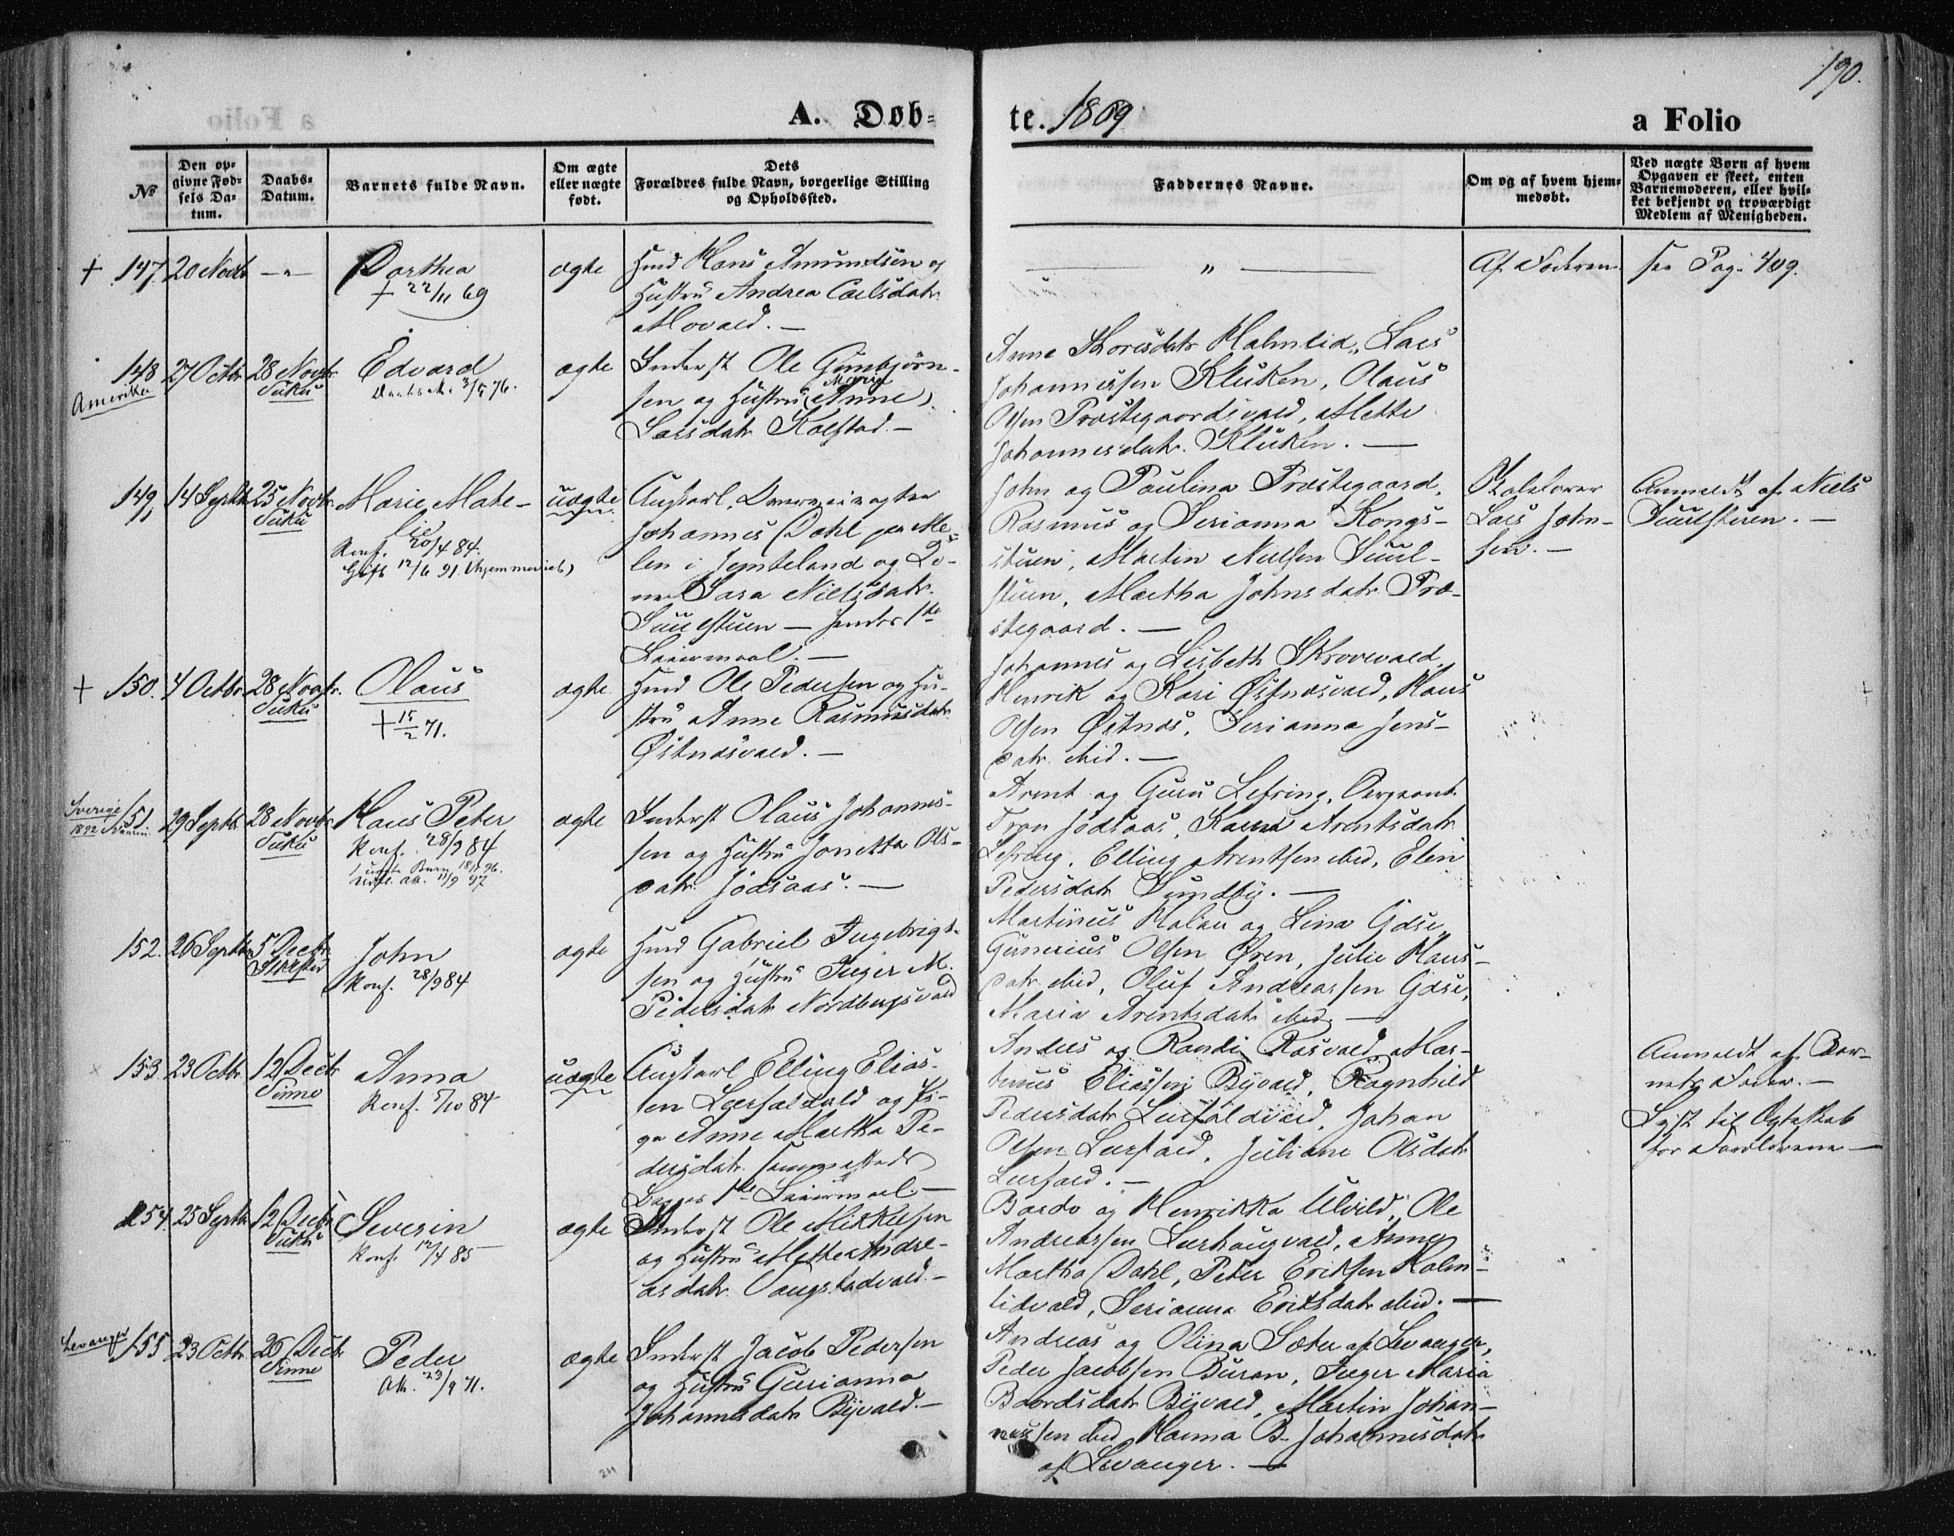 190.
A. Døb-
te. 1869
a Folio
No
Den op-
givne Fød-
sels Da-
tum.
Daabs-
Datum.
Barnets fulde Navn.
Om ægte
eller uægte
født.
Dets
Forældres fulde Navn, borgerlige Stilling
og Opholdssted.
Faddernes Navne.
Om og af hvem hjem-
medøbt.
Ved uægte Børn af hvem
Opgaven er skeet, enten
Barnemoderen, eller hvil-
ket bekjendt og troværdigt
Medlem af Menigheden.
+ 147. 20 Novbr — " — Dorthea
+ 22/11 69
ægte
Hmd Hans Amundsen og
Hustru Andrea Carlsdatr
Movald. —
— " —
Af Faderen.
see Pag. 409.
148 27 Octbr 28 Novbr. Edvard
Amerika
ægte
Inderst Ole Gunbjørn-
Marie
sen og Hustru (Anne)
Larsdatr Kolstad. —
Anne Thoresdatr Halmlid, Lars
Johannessen Kluken, Olaus
Olsen Præstegaardsvald, Mette
Johannesdatr. Kluken. —
149 14 Septbr 25 Novbr. Marie Mate-
lie
Konf. 20/4 84.
Gift 12/6 91.
uægte
Ungkarl
Johannes Dahl
len i Jemteland og
Sara Nielsdatr.
Suulstuen — hendes 1ste
Leiermaal. —
John og Paulina Præstegaard,
Rasmus og Serianna Kongs-
stuen, Martin Nielsen Suul-
stuen, Martha Johnsdatr Præ-
stegaard. —
Lars John-
sen. —
Anmeldt af Niels
Suulstuen. —
+ 150. 4 Octbr 28 Novbr. Olaus
+ 15/2 71.
ægte
Hmd Ole Pedersen og Hu-
stru Anne Rasmusdatr
Østnæsvald. —
Johannes og Lisbeth Skrovevald
Henrik og Kari Østnæsvald, Hans
Olsen Østnæs, Serianna Jens-
datr ibid. —
Sverige
1892
151 29 Septbr 28 Novbr Hans Peter
Konf. 28/9 84
ægte
Inderst Olaus Johannes-
sen og Hustru Jonetta Ols-
datr Jødsaas. —
Arent og Guru Lefring, Sergeant
Tron Jødsaas, Arentsdatr
Lefring, Elling Arentsen ibid, Elen
Pedersdatr Sundby. —
152. 26 Septbr 5 Decbr John
Konf. 28/9 84
ægte
Hmd Gabriel Ingebrigt-
sen og Hustru Inger M.
Pedersdatr Nordbergsvald
Martinus Halan og Lina Gdse,
Gunerius Olsen Øren, Julie Hans-
datr ibid, Oluf Andreassen Gdse,
Maria Arentsdatr ibid. —
153. 23 Octbr. 12 Decbr Anna
Konf. 5/10 84
uægte
Ungkarl Elling Elias-
sen Leerfaldvald og Pi-
ge Anne Martha Pe-
dersdatr. sammesteds
Begges 1ste Leiermaal. —
Anders og Randi Rosvald, Mar-
tinus Eliassen Byvald, Ragnhild
Pedersdatr Leerfaldvald, Johan
Olsen Leerfald, Juliane Olsdatr
Leerfald. —
Anmeldt af Bar-
nets Fader. —
Lyst til Ægteskab
for Forældrene —
154. 25 Septbr 12 Decbr Severin
Konf. 12/4 85
ægte
Inderst Ole Mikkelsen
og Hustru Mette Andre-
asdatr Vangstadvald. —
Bardo og Henrikka Ulvild, Ole
Andreassen Leerhaugvald, Anne
Martha Dahl, Peter Eriksen Halm-
lidvald, Serianna Eriksdatr ibid. —
Levanger 155 23 Octbr 26 Decbr Peder
Att. 23/9 71.
ægte
Inderst Jacob Pedersen
og Hustru Gurianna
Johannesdatr Byvald. —
Andreas og Olina Sæter af Levanger,
Peder Jacobsen Buran, Inger Maria
Baardsdatr Byvald, Martin Johan-
nessen ibid Hanna B. Johannesdatr
af Levanger. —